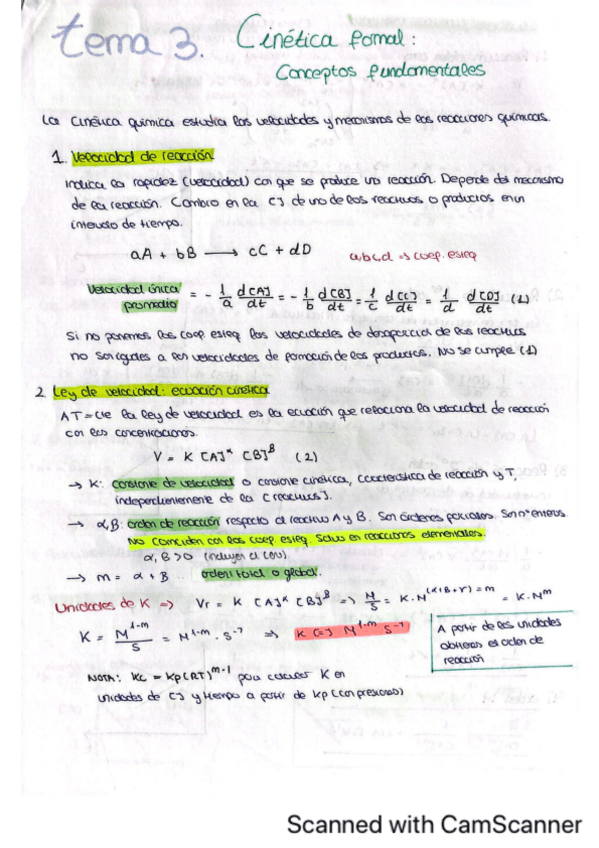 tema 3. Cinética formal:
Conceptos fundamentales
La cinética química estudia las velocidades y mecanismos de las reacciones químicas.
1. Velocidad de reacción
Indica la rapidez (velocidad) con que se produce una reacción. Depende del mecanismo
de la reacción. Cambio en la [ ] de uno de los reactivos o productos en un
intervalo de tiempo.
aA + bB → cC + dD a,b,c,d => coef. esteq
Velocidad única
promedio = - 1/a d[A]/dt = - 1/b d[B]/dt = 1/c d[C]/dt = 1/d d[D]/dt (1)
Si no ponemos los coef esteq. las velocidades de desaparición de los reactivos
no son iguales a las velocidades de formación de los productos. No se cumple (1)
2. Ley de velocidad: ecuación cinética
A T = cte la ley de velocidad es la ecuación que relaciona la velocidad de reacción
con las concentraciones.
V = K [A]^α [B]^β (2)
→ K: constante de velocidad o constante cinética, característica de reacción y T,
independientemente de la [reactivos].
→ α, β: orden de reacción respecto al reactivo A y B. Son órdenes parciales. Son nº enteros.
No coinciden con los coef. esteq. Salvo en reacciones elementales.
α, β > 0 (incluye el cero)
→ m = α + β .. orden total o global.
Unidades de K => Vr = K [A]^α [B]^β => M/s = K · M^(α+β+γ) = m = K · M^m
K = M^1-m / s = M^1-m · s^-1 => K [=] M^1-m s^-1
A partir de las unidades
obtienes el orden de
reacción
NOTA: Kc = Kp (RT)^m-1 para calcular K en
unidades de [ ] y tiempo a partir de Kp (con presiones)
Scanned with CamScanner